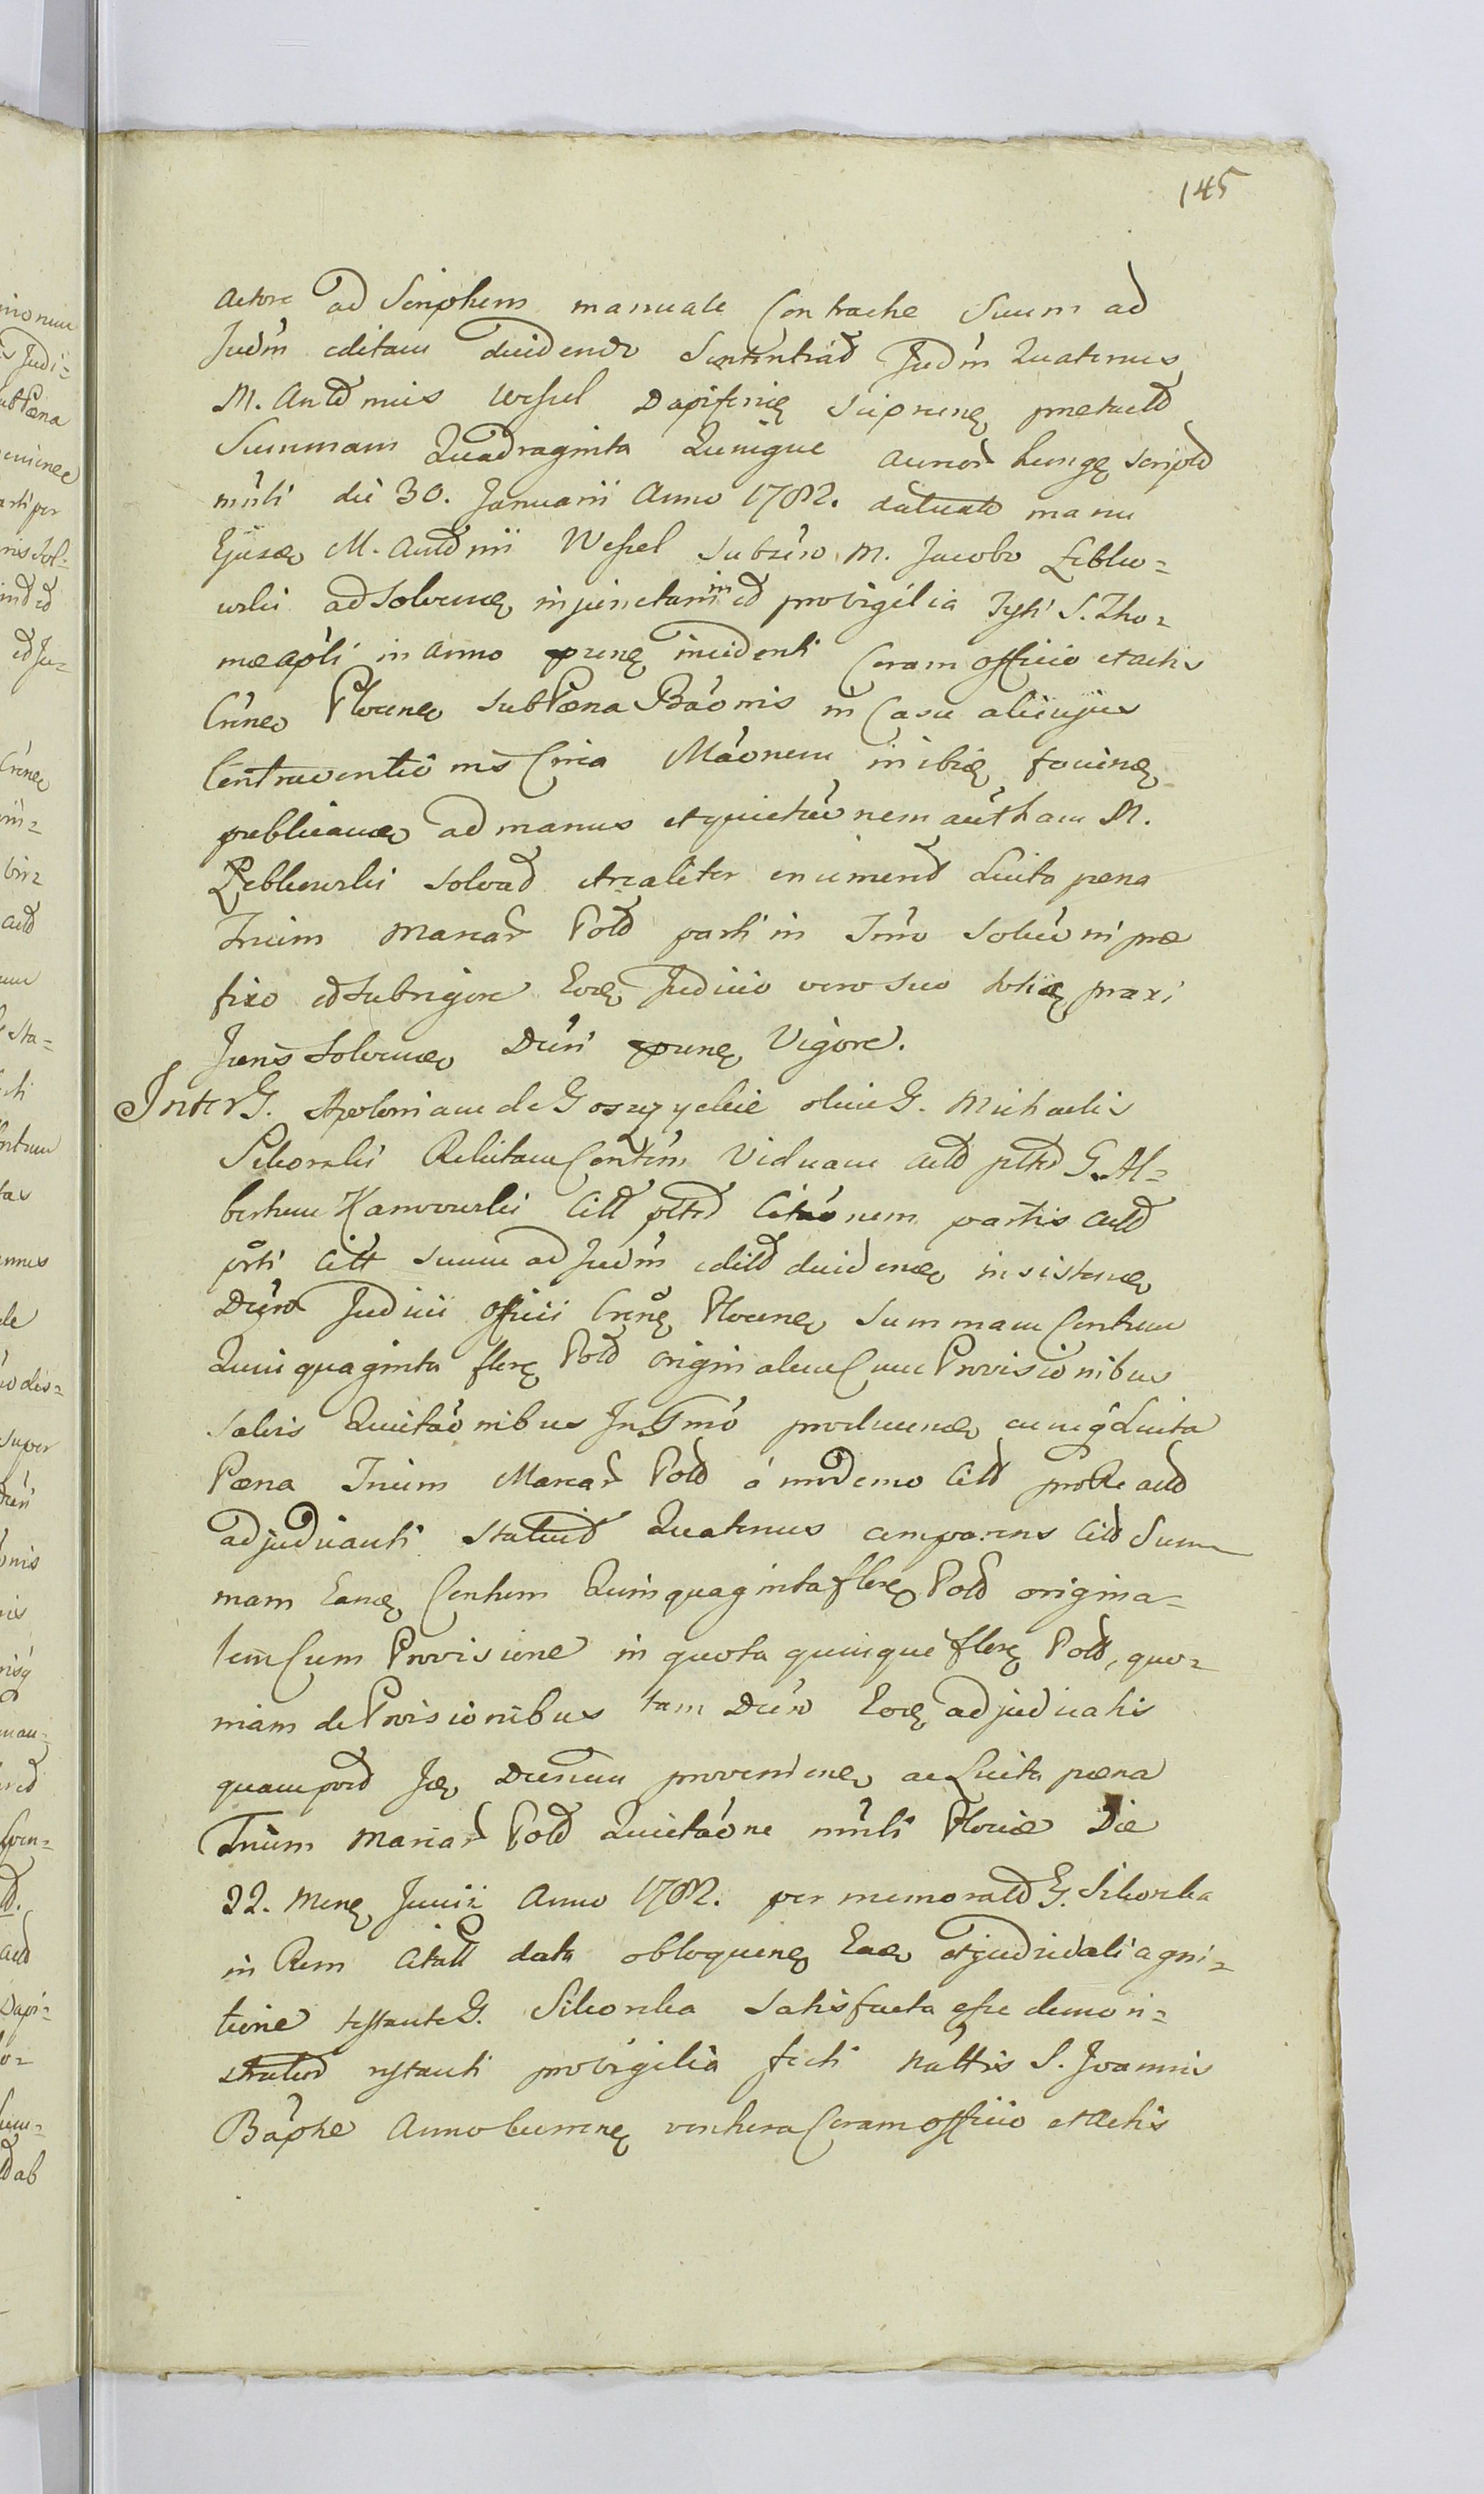 145
actore ad Scriptum manuale Contractae Suum ad
Judm editam decidendo Sententiad Judm Quatenus
M. Antd nius Wessel Dapiferię Scieprneę praetactd
Summam Quadraginta Quinque aureor hungę script
mnli die 30. Januarii Anno 1782. datuat manu
Ejusdę M. Antd nii Wessel Subscro M. Jacobo Leblu=
wski ad Solvenę injunctam in ed pro vigilia Festi S. Tho=
mae Apli in Anno prnę incidenti Coram officio et actis
Crnę Plocenę sub Poena Baonis in Casu alicujus
Contraventionis Circa Maonem in ibię foviendę
publicanę ad manus et quietaonem auth am M.
Leblewski solvad et realiter enumerad Luita poena
Trium Marcar Pold parti in Tmo Soluoni prae
fixo ed sub rigore Eorę Judicio vero suo totię praxi
Juris Solvenę Dcri prnę Vigore.
Inter G. Apoloniam de Goszzyckie olim G. Michaelis
Sikorski Relictam Contm Viduam actd ptrd G. Al=
bertum Karwowski Citt pttd Citaonem partis actd
prti Citt suum ad Judm editd decidendę insistenę
Dcro Judicii Officii Crenę Plocenę Summam Centum
Quinquaginta flenę Pold originalem Cum Provisionibus
salvis Quietaonibus In Tmo producendę cumq Luita
Poena Trium Marcar Pold a moderno Citt pro Re actd
adjudicanti Statuid Quatenus comparens Citd Sum
mam Eandę Centum Quinquaginta flenę Pold origina=
lem Cum Provisione in quota quinque flenę Pold, quo=
niam de Provisionibus tam Dcro Eorę adjudicatis
quam post Id Dcretum provenienę ac Luita poena
Trium Marcar Pold Quietaone mnli Plociae Die
22. Menę Junii Anno 1782. per memoratd G. Sikorska
in Rem Citatt data obloquenę Eadę et judiciali agni=
tione testante G. Sikorska Satisfacta esse demon=
stratud restanti pro vigilia festi nattis S. Joannis
Baptae Anno Currenę ventura Coram officio et Actis